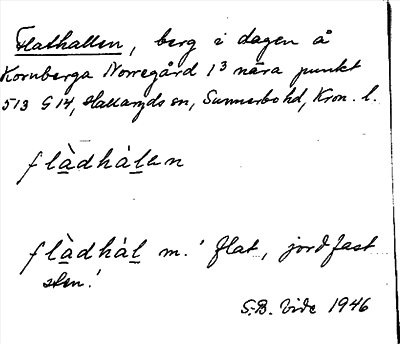 Flathallen, berg i dagen å
Kornberga Norregård 1³ nära punkt
513 G 14, Hallaryds sn, Sunnerbo hd, Kron. l.
flàdhálen
flàdhál m. 'flat, jordfast
sten.'
S.B. Vide 1946